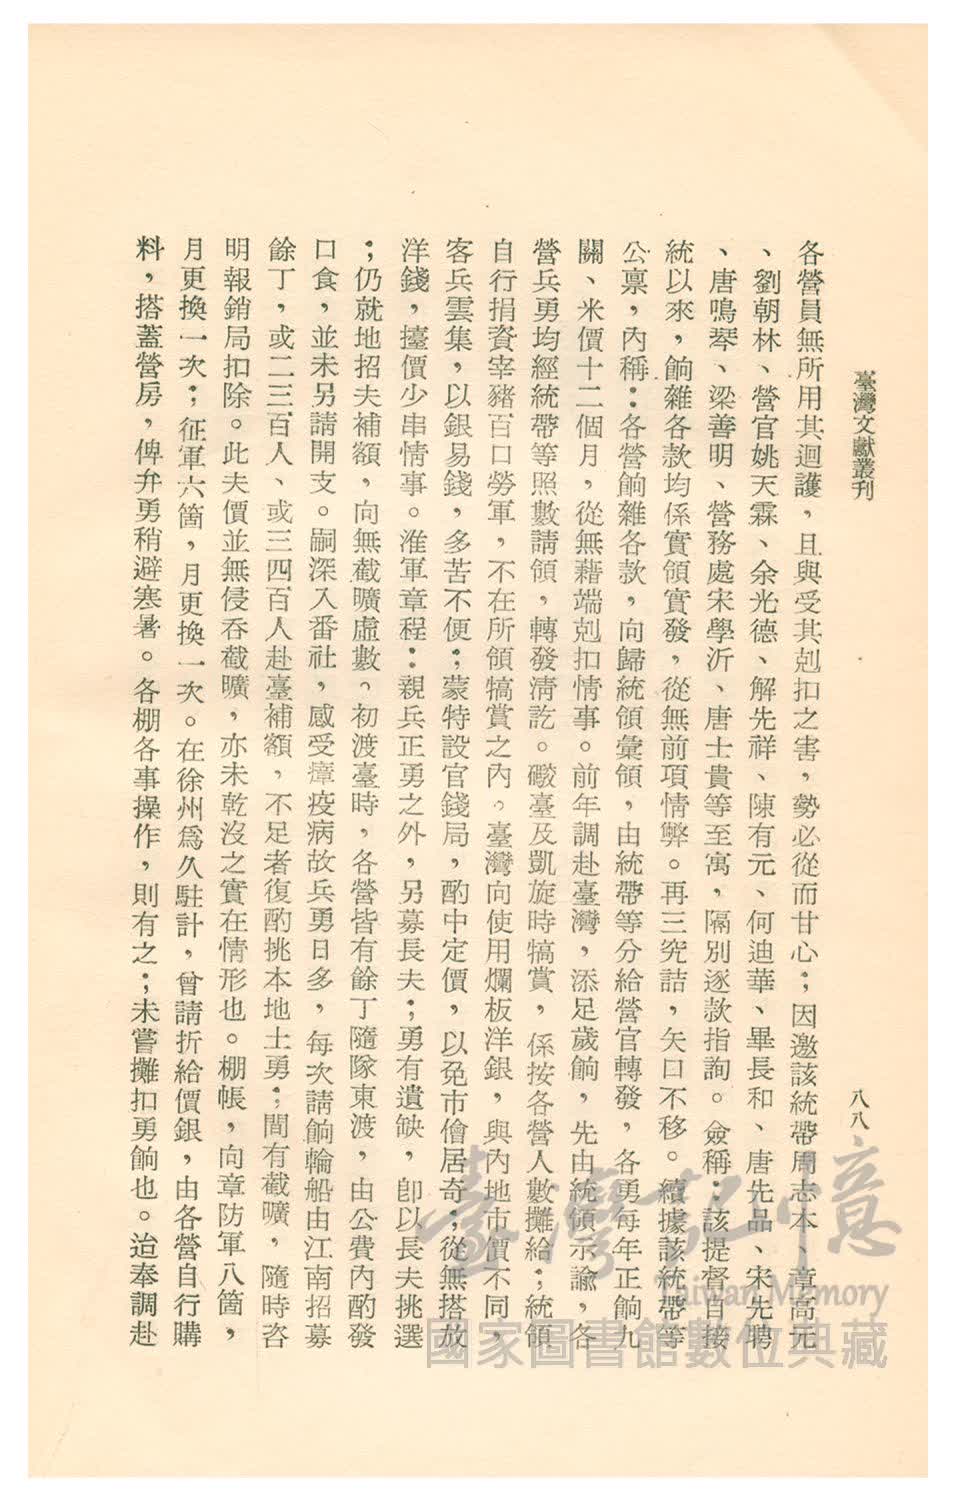 臺灣文獻叢刊
八八
各營員無所用其迴護，且與受其剋扣之害，勢必從而甘心；因邀該統帶周志本、章高元
、劉朝林、營官姚天霖、余光德、解先祥、陳有元、何迪華、畢長和、唐先品、宋先聘
、唐鳴琴、梁善明、營務處宋學沂、唐士貴等至寓，隔別逐款指詢。僉稱：該提督自接
統以來，餉雜各款均係實領實發，從無前項情弊。再三究詰，矢口不移。續據該統帶等
公稟，內稱：各營餉雜各款，向歸統領彙領，由統帶等分給營官轉發，各勇每年正餉九
關、米價十二個月，從無藉端剋扣情事。前年調赴臺灣，添足歲餉，先由統領示諭，各
營兵勇均經統帶等照數請領，轉發清訖。礮臺及凱旋時犒賞，係按各營人數攤給；統領
自行捐資宰豬百口勞軍，不在所領犒賞之內。臺灣向使用爛板洋銀，與內地市價不同，
客兵雲集，以銀易錢，多苦不便；蒙特設官錢局，酌中定價，以免市儈居奇；從無搭放
洋錢，擡價少串情事。淮軍章程：親兵正勇之外，另募長夫；勇有遺缺，卽以長夫挑選
；仍就地招夫補額，向無截曠虛數。初渡臺時，各營皆有餘丁隨隊東渡，由公費內酌發
口食，並未另請開支。嗣深入番社，感受瘴疫病故兵勇日多，每次請餉輪船由江南招募
餘丁，或二三百人、或三四百人赴臺補額，不足者復酌挑本地土勇；間有截曠，隨時咨
明報銷局扣除。此夫價並無侵吞截曠，亦未乾沒之實在情形也。棚帳，向章防軍八箇，
月更換一次；征軍六箇，月更換一次。在徐州爲久駐計，曾請折給價銀，由各營自行購
料，搭蓋營房，俾弁勇稍避寒暑。各棚各事操作，則有之；未嘗攤扣勇餉也。迨奉調赴
臺灣記憶
Taiwan Memory
國家圖書館數位典藏